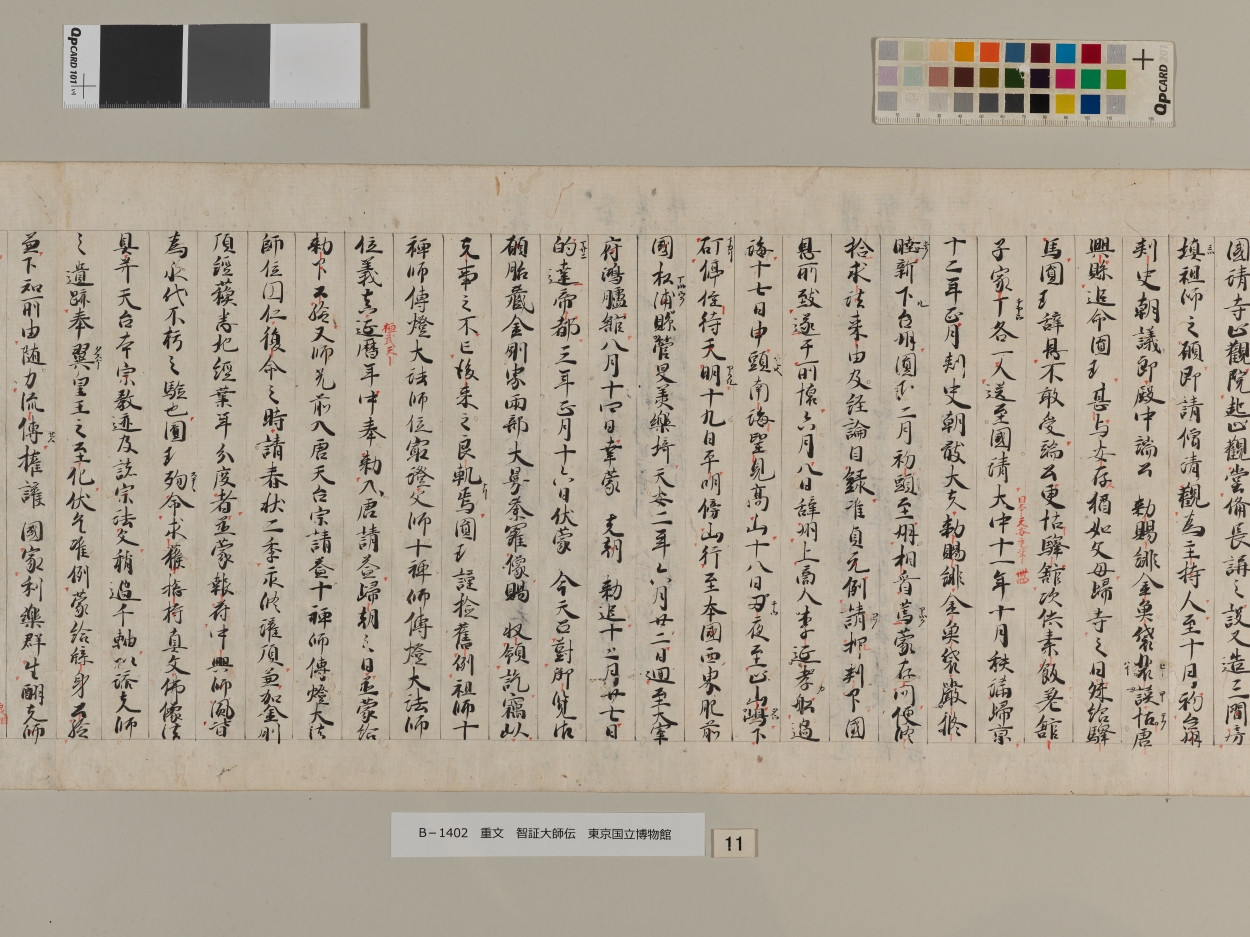 國請寺止觀院起止觀堂備長講之設又造三間房
填祖師之願即請僧清觀為主持人至十月初台州
刺史朝議郎殿中端公 勅賜緋金魚袋裴謨帖唐
興縣追令圓珎甚与安存猶如父母歸寺之日殊給驛
馬圓珎辞退不敢受端公更帖驛舘次供素飯老舘
子家丁各一人送至國清大中十一年十月秩滿歸京
十二年正月刺史朝散大夫勅賜緋金魚袋嚴修
睦新下台州圓珎二月初頭至州相看焉蒙存問便
捨求法来由及経論目録准貞元例請押判印國
恩前致遂于所懐六月八日辞州上商人李延孝舩過
海十七日申頭南海望見高山十八日丑夜至止山嶋下
矴停住待天明十九日平明傍山行至本國西界肥前
國松浦縣管旻美樂埼 天安二年六月廿二日迴至大宰
府鴻臚舘八月十四日幸蒙 先朝 勅追十二月廿七日
的達帝都三年正月十六日伏蒙 今天云對御覧下
願胎藏金剛界兩部大曼荼羅像賜 収領訖竊以
先帝之不亡後来之良軌焉圓珎謹検舊例祖師十
禅師傳燈大法師位寂澄又師十禅師傳燈大法師
位義真延暦年中奉 勅入唐請益歸朝之日並蒙給
勅下公験又師兄前入唐天台宗請益十禅師傳燈大法
師位圓仁復命之時請春秋二季永修灌頂並加金剛
頂經蘓悉地經業年分度者並蒙報符中興師風皆
為永代不朽之験也圓珎殉命求獲捨持真文佛像法
具并天台本宗教迹及諸宗法文稍過千軸以添大師
之遺跡奉翼皇王之至化伏乞准例蒙給牒身公験
並下知所由随力流傳擁護 國家利樂群生酬先師
桓武天下
B−1402 重文 智証大師伝 東京国立博物館
11
QpCARD 101
QpCARD 201